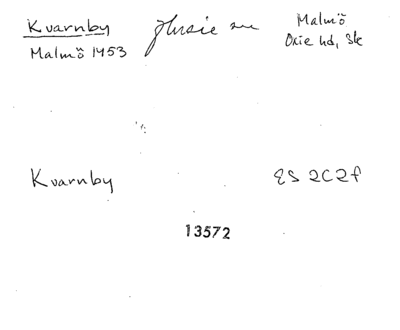 Kvarnby Husie sn Malmö
Malmö 1953 Oxie hd, Sk
Kvarnby ES 2C2f
13572